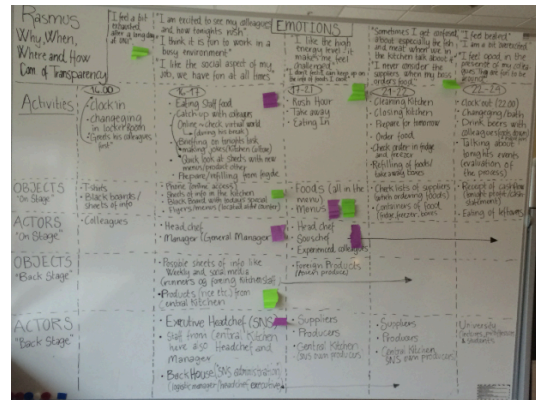 Rasmus
Why, When,
Where and How
Com of Transparency
"I feel a bit
exhausted
after a long day
"I am excited to see my colleagues
and how tonights rush"
"I think it is fun to work in a busy
environment"
"I like the social aspect of my
job, we have fun at all times"
EMOTIONS
"I like the high
energy level, it
make me feel
challenged"
"Sometimes I get confused
about especially the fish
and meat when
the kitchen talk about it"
"I never consider the
suppliers when my boss
orders food"
"I feel
I feel good in the
Activities
14.00
Clock in
changeing
in lockerroom
"Greets his colleagues
first"
16-17
Eating Staff food
Catch up with collegues
Online - check virtual world
(during his break)
Briefing on tonights rush
making jokes
Quick look at sheets with new
menus/product other
Prepare/refilling from fridge
17-21
Rush Hour
Take away
Eating In
21-22
Cleaning Kitchen
Closing kitchen
Prepare for tomorrow
Order food
Check order in fridge
and freezer
Refilling of foods/
take away boxes
22-24
Clock out (22.00)
Changing/bath
Drink beers with
Talking about
tonights events
(evaluation of the
process)
OBJECTS
"On Stage"
T-shirts
Black boards/
sheets of info
Sheets of info in the kitchen
Black Board with todays special
Flyers/menus
Foods (all in the
menu)
Menus
Check lists of suppliers
(when ordering foods)
Containers of food
(fridge, freezer, boxes
Receipt of cashflow
Eating of leftovers
ACTORS
"On Stage"
Colleagues
Head chef
Manager (General Manager)
Head chef
Souschef
Experienced collegues
OBJECTS
"Back Stage"
Possible sheets of info like
Weekly and social media
Products (rice etc.) from
Central Kitchen
Foreign Products
ACTORS
"Back Stage"
Executive Headchef (SNS)
Staff from Central Kitchen
have also Headchef and
Manager
Back House (SNS administration
(logistic manager/headchef executive)
Suppliers
Producers
Central Kitchen
SNS own produces
Suppliers
Producers
Central Kitchen
SNS own produces
University
& students